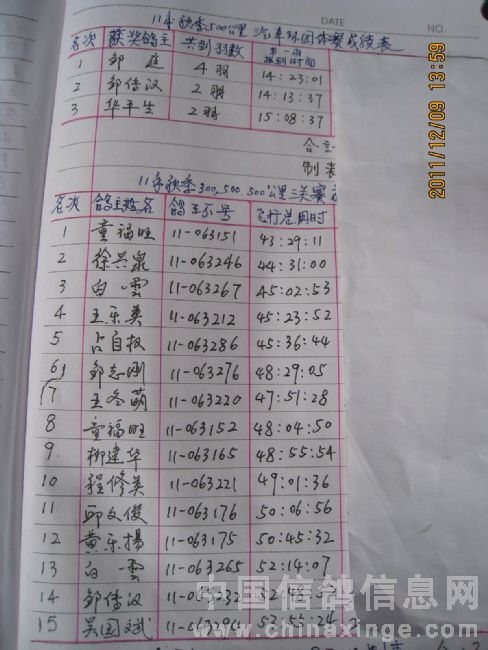 DATE
NO.
11年秋季500公里汽车环团体赛成绩表
名次 获奖鸽主 共到羽数 第一羽报到时间
1 邹庭 4羽 14:23:01
2 邹倍汉 2羽 14:13:37
3 华平生 2羽 15:08:37
制表
11年秋季300,500,500公里三关赛
名次 鸽主姓名 鸽王环号 飞行总用时
1 童福旺 11-063151 43:29:11
2 徐兴泉 11-063246 44:31:00
3 白云 11-063267 45:02:53
4 王乐英 11-063212 45:23:52
5 占自权 11-063286 45:36:44
6 邹志刚 11-063276 48:29:05
7 王冬萌 11-063220 47:51:28
8 童福旺 11-063152 48:04:50
9 柳建华 11-063165 48:55:54
10 程修英 11-063221 49:01:36
11 邱文俊 11-063176 50:06:56
12 黄乐扬 11-063175 50:45:32
13 白云 11-063265 52:14:07
14 邹倍汉
15 吴国斌
2011/12/09 13:59
中国信鸽信息网
www.chinaxinge.com